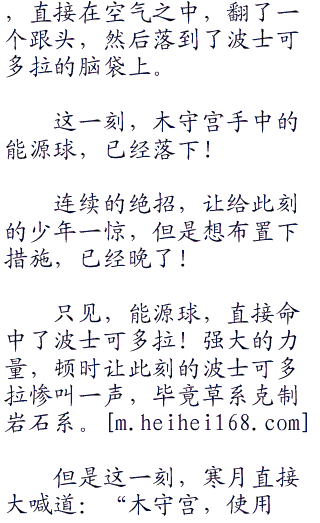 ，直接在空气之中，翻了一
个跟头，然后落到了波士可
多拉的脑袋上。
这一刻，木守宫手中的
能源球，已经落下！
连续的绝招，让给此刻
的少年一惊，但是想布置下
措施，已经晚了！
只见，能源球，直接命
中了波士可多拉！强大的力
量，顿时让此刻的波士可多
拉惨叫一声，毕竟草系克制
岩石系。[m.heihei168.com]
但是这一刻，寒月直接
大喊道：“木守宫，使用